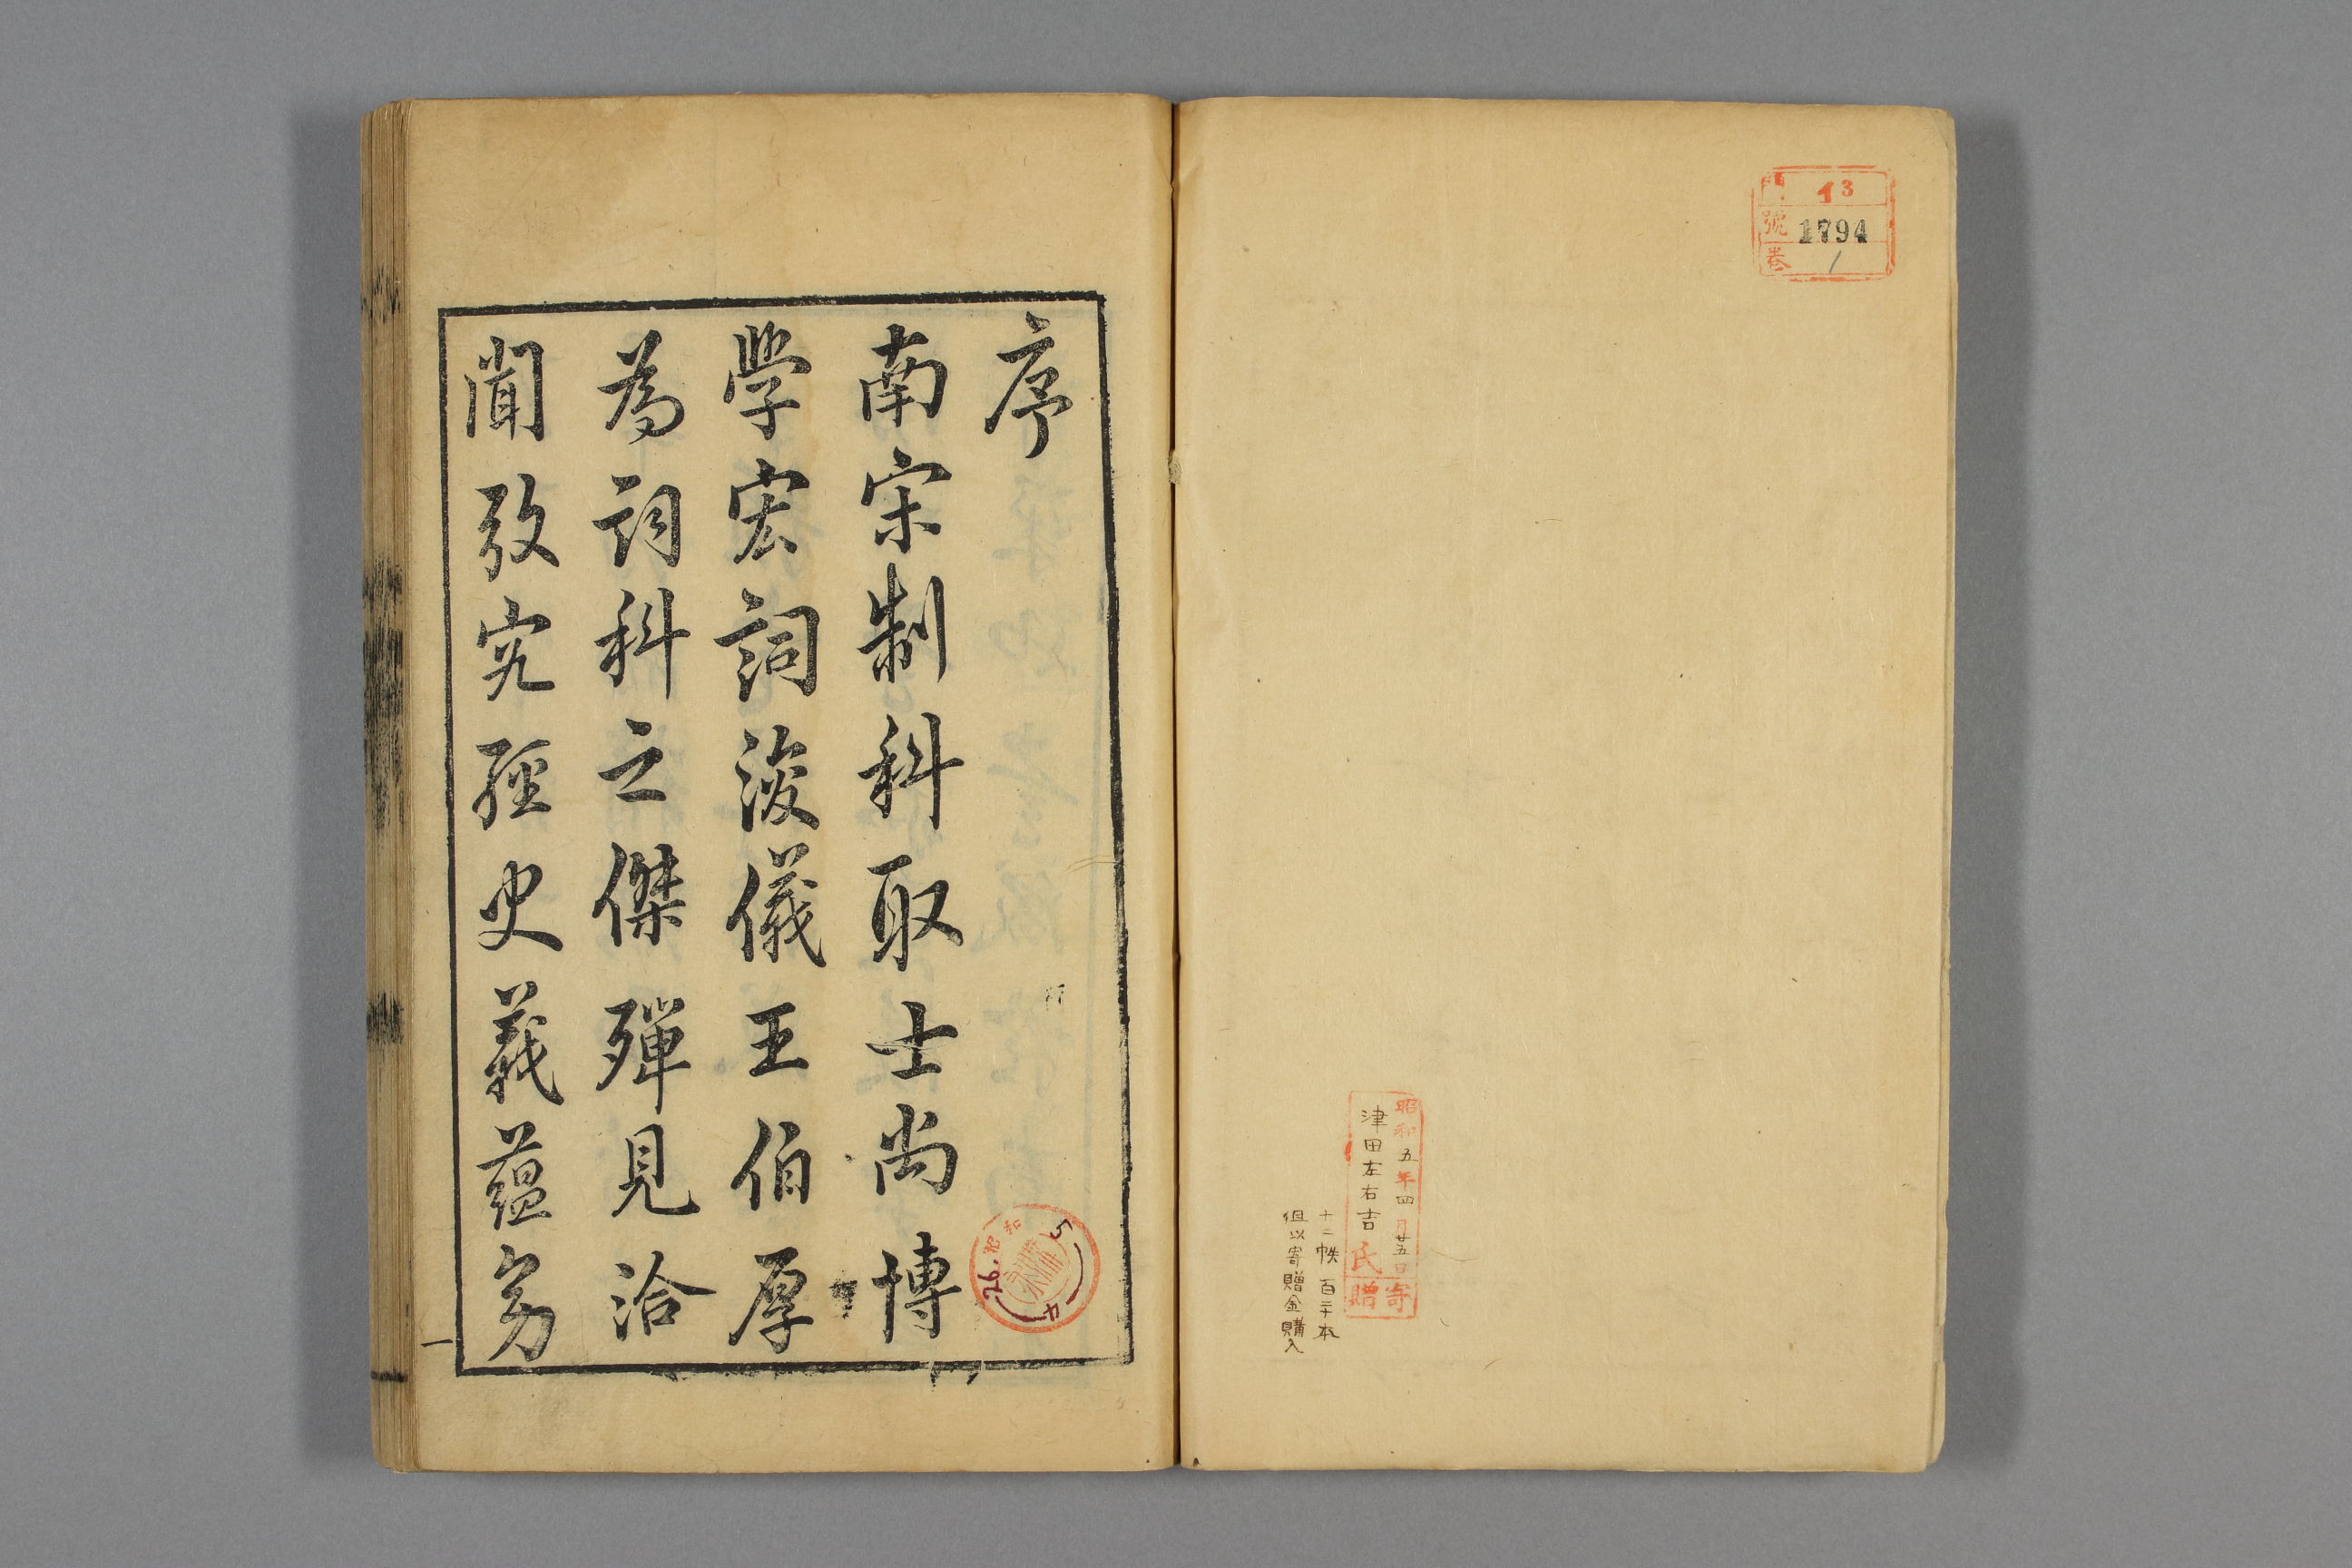 門 13
號 1794
卷 1
昭和五年四月廿五日寄
津田左右吉氏贈
十二帙 百二十本
但以寄贈金購入
序
南宋制科取士尚博
學宏詞浚儀王伯厚
為詞科之傑殫見洽
聞攷究經史義蘊旁
昭和 5 4 26.